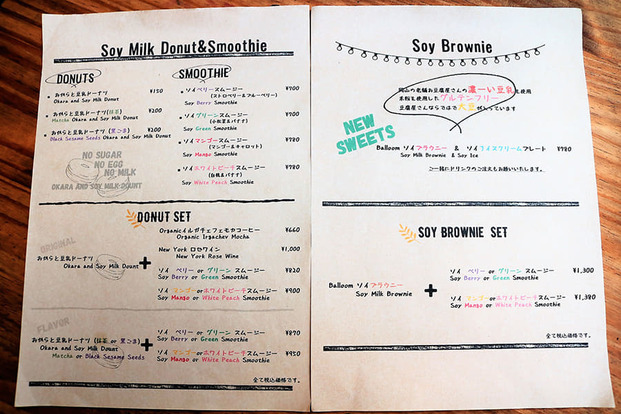 Soy Milk Donut&Smoothie
DONUTS
おからと豆乳ドーナツ ¥150
Okara and Soy Milk Donut
おからと豆乳ドーナツ(抹茶) ¥200
Matcha Okara and Soy Milk Donut
おからと豆乳ドーナツ(黒ごま) ¥200
Black Sesame Seeds Okara and Soy Milk Donut
NO SUGAR
NO EGG
NO MILK
OKARA AND SOY MILK DOUNT
SMOOTHIE
ソイベリースムージー ¥700
(ストロベリー&ブルーベリー)
Soy Berry Smoothie
ソイグリーンスムージー ¥700
(小松菜&バナナ)
Soy Green Smoothie
ソイマンゴースムージー ¥780
(マンゴー&キャロット)
Soy Mango Smoothie
ソイホワイトピーチスムージー ¥780
(白桃&バナナ)
Soy White Peach Smoothie
DONUT SET
ORIGINAL
おからと豆乳ドーナツ
Okara and Soy Milk Dount
+
Organicイルガチェフェモカコーヒー ¥660
Organic Irgachev Mocha
New York ロゼワイン ¥1,000
New York Rose Wine
ソイ ベリー or グリーン スムージー ¥820
Soy Berry or Green Smoothie
ソイ マンゴーorホワイトピーチスムージー ¥900
Soy Mango or White Peach Smoothie
FLAVOR
おからと豆乳ドーナツ (抹茶 or 黒ごま)
Okara and Soy Milk Dount
Matcha or Black Sesame Seeds
+
ソイ ベリー or グリーン スムージー ¥870
Soy Berry or Green Smoothie
ソイ マンゴーorホワイトピーチスムージー ¥950
Soy Mango or White Peach Smoothie
全て税込価格です。
Soy Brownie
岡山の老舗お豆腐屋さんの濃ーい豆乳を使用
米粉を使用したグルテンフリー
豆腐屋さんならではの大豆がしています
NEW
SWEETS
Balloom ソイブラウニー & ソイアイスクリームプレート ¥780
Soy Milk Brownie & Soy Ice
ご一緒にドリンクのご注文もお願いいたします。
SOY BROWNIE SET
Balloom ソイブラウニー
Soy Milk Brownie
+
ソイ ベリー or グリーン スムージー ¥1,300
Soy Berry or Green Smoothie
ソイ マンゴーorホワイトピーチスムージー ¥1,380
Soy Mango or White Peach Smoothie
全て税込価格です。